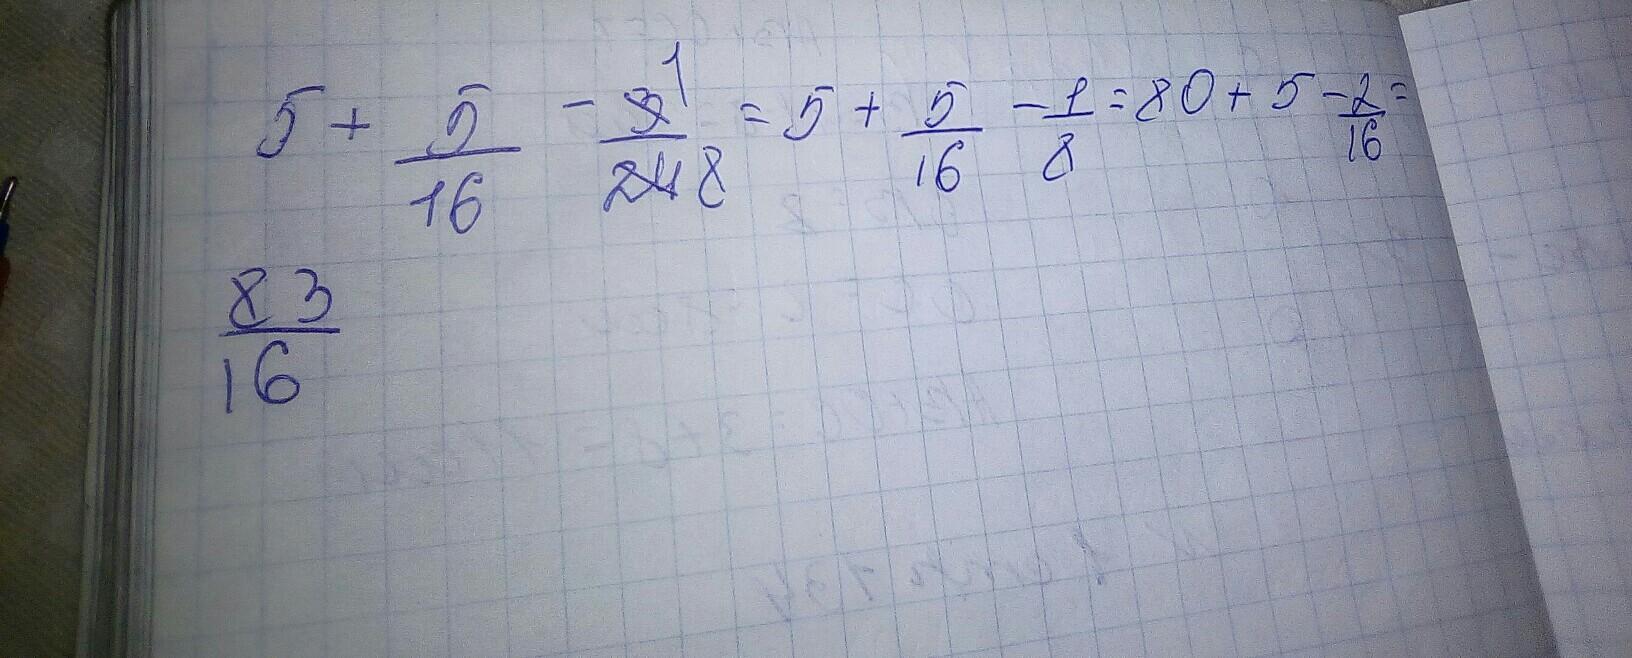 5 + 5/16 - 3/24 1 8 = 5 + 5/16 - 1/8 = 80 + 5 - 2/16 =
83/16